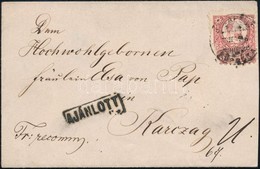 Dem
Hochwohlgebornen
fräulein Elsa von Pap
in
AJÁNLOTT
Karczag
Fr: recomm.